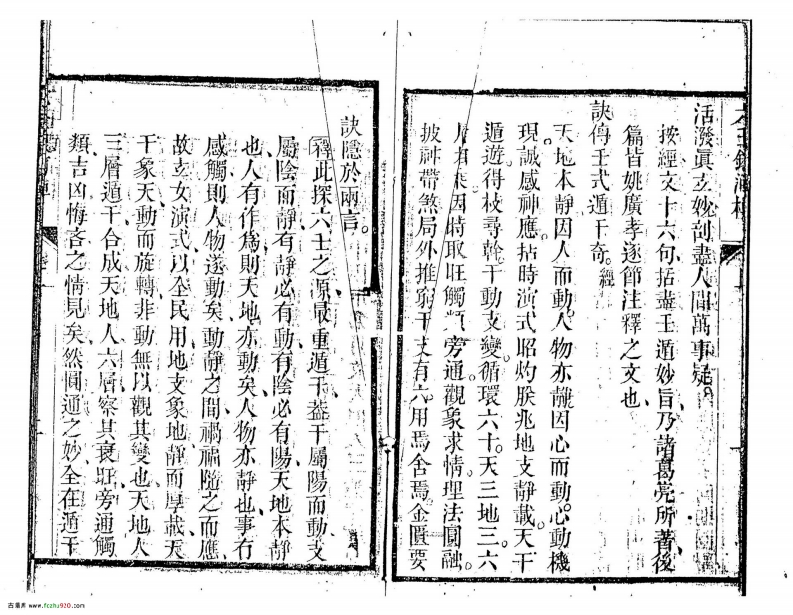 活潑真玄妙剖盡人間萬事疑
按經文十六句括盡壬遁妙旨乃諸葛亮所著後
篇皆姚廣孝逐節注釋之文也
訣傳壬式遁干奇。經
天地本靜因人而動。人物亦靜因心而動。心動機
現。誠感神應。拈時演式昭灼朕兆地支靜載。天干
遁遊得枝尋幹。干動支變循環六十。天三地三六
因時取旺觸類旁通觀象求情理法圓融。
披神帶煞局外推窮干支有六用焉金焉金匱要
訣隱於兩言。
釋此探六壬之源最重遁干蓋干屬陽而動支
屬陰而靜有靜必有動有陰必有陽天地本靜
也人有作為則天地亦動矣人物亦靜也事有
感觸則人物遂動矣動靜之間禍福隨之而應
故玄女演式以全民用地支象地靜而厚載天
干象天動而旋轉非動無以觀其變也天地人
三層遁干合成天地人六層察其衰旺旁通觸
類吉凶悔吝之情見矣然圓通之妙全在遁干
古籍库 www.fczhu920.com